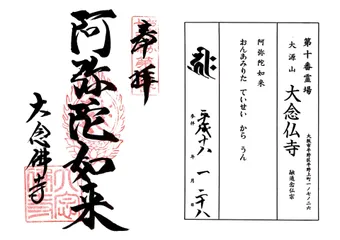 奉拝
阿弥陀如来
大念佛寺
第十番霊場
大源山 大念仏寺
大阪市平野区平野上町一ノ七ノ二六
融通念仏宗
阿弥陀如来
おんあみりた ていせい から うん
平成十八 一 二十八
奉拝 年 月 日